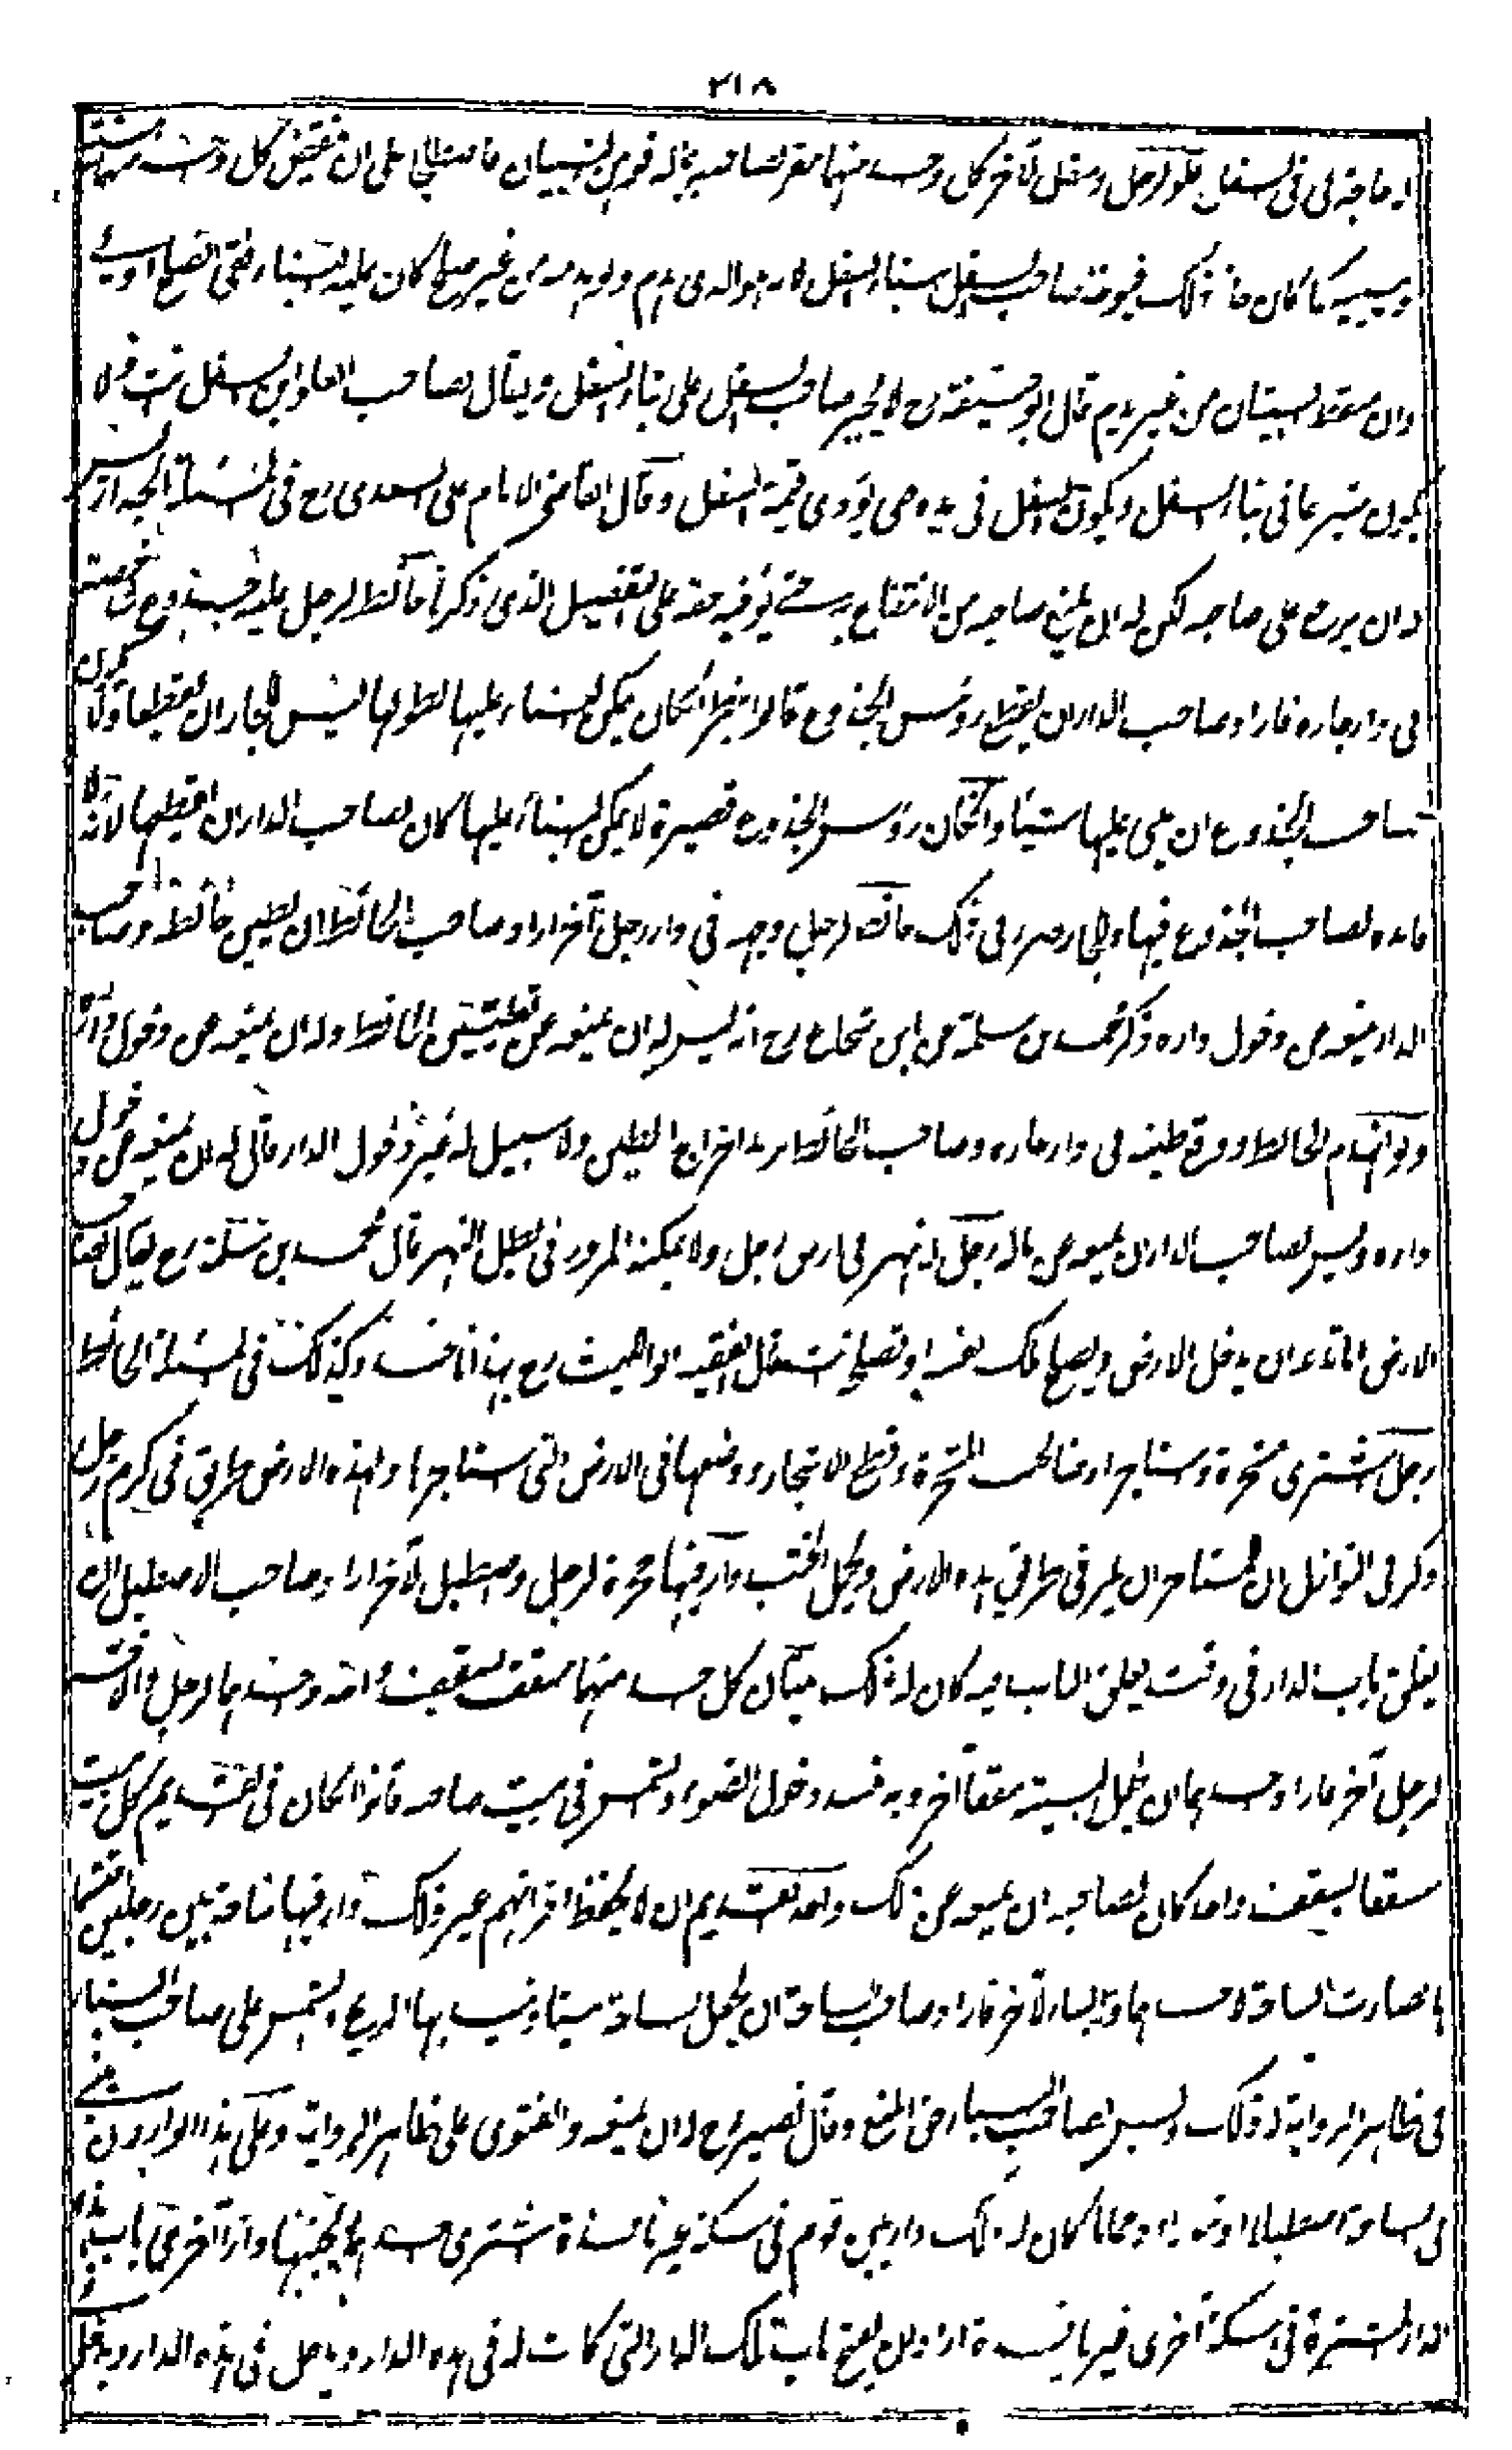 ٢١٨
له حاجة لى فى السفل علو لرجل وسفل لآخر كل واحد منهما مقر لصاحبه بماله فوهى البنيان فاصطلحا على ان ينقض كل واحد منهما
ويبنيه كما كان فانه يؤخذ صاحب السفل ببناء السفل لانه هو الذى هدم ولو هدمه من غير صلح كان عليه البناء ففى الصلح اولى
وان سقط البيتان من غير هدم قال ابو حنيفة رح لا يجبر صاحب السفل على بناء السفل ويقال لصاحب العلو ابن السفل انت ولا
يكون متبرعا فى بناء السفل ويكون السفل فى يده حتى يؤدى قيمة السفل وقال القاضى الامام على السعدى رح فى مسئلة الجدار ليس
له ان يرجع على صاحبه لكن له ان يمنع صاحبه من الانتفاع به حتى يوفيه حقه على التفصيل الذى ذكرنا حائط لرجل عليه جذوع شاخصة
الى دار جاره فاراد صاحب الدار ان يقطع رؤس الجذوع قالوا ينظر ان كان يمكن البناء عليها لطولها ليس للجار ان يقطعها ولا يكون
لصاحب الجذوع ان يبنى عليها شيئا وان كان رؤس الجذوع قصيرة لا يمكن البناء عليها كان لصاحب الدار ان يقطعها لانه لا
فائدة لصاحب الجذوع فيها وللجار ضرر فى ذلك حائط لرجل وجهه فى دار رجل آخر اراد صاحب الحائط ان يطين حائطه وصاحب
الدار منعه عن دخول داره ذكر محمد بن سلمة عن ابن شجاع رح انه ليس له ان يمنعه عن تطيين الحائط وله ان يمنعه عن دخول داره
ولو انهدم الحائط ووقع طينه فى دار جاره وصاحب الحائط يريد اخراج الطين ولا سبيل له غير دخول الدار قال له ان يمنعه عن دخول
داره وليس لصاحب الدار ان يمنعه عن ماله رجل له نهر فى ارض رجل ولا يمكنه المرور فى بطن النهر قال محمد بن سلمة رح يقال لصاحب
الارض اما تدعه ان يدخل الارض ويصلح ملك نفسه او تصلح انت قال الفقيه ابو الليث رح بهذا ناخذ وكذلك فى مسئلة الحائط
رجل اشترى شجرة واستاجر ارضا لصاحب الشجرة وقطع الاشجار ووضعها فى الارض التى استاجرها ولهذه الارض طريق فى كرم رجل
ذكر فى النوازل ان للمستاجر ان يمر فى طريق هذه الارض ويحمل الخشب دار فيها حجرة لرجل واصطبل لآخر اراد صاحب الاصطبل ان
يغلق باب الدار فى وقت يغلق الباب فيه كان له ذلك بيتان كل واحد منهما مسقف بسقف واحد واحدهما لرجل والآخر
لرجل آخر فاراد احدهما ان يجعل لبيته سقفا آخر وبه يفسد دخول الضوء والشمس فى بيت صاحبه قالوا ان كان فى القديم كل بيت
مسقفا بسقف واحد كان لصاحبه ان يمنعه عن ذلك وحد القديم ان لا يحفظ اقرانهم غير ذلك دار فيها ساحة بين رجلين اقتسما
ها فصارت الساحة لاحدهما والبناء للآخر فاراد صاحب الساحة ان يجعل الساحة بيتا ويسد بها الريح والشمس على صاحب البناء
فى ظاهر الرواية له ذلك وليس لصاحب البناء حق المنع وقال نصير رح له ان يمنعه والفتوى على ظاهر الرواية وعلى هذا لو اراد ان يبنى
فى الساحة اصطبلا او تنورا او حماما كان له ذلك دار بين قوم فى سكة غير نافذة اشترى احدهم بجنبها دارا اخرى باب هذه
الدار المشتراة فى سكة اخرى غير نافذة اراد ان يفتح باب تلك الدار التى كانت له فى هذه الدار ويدخل فى هذه الدار ويدخل